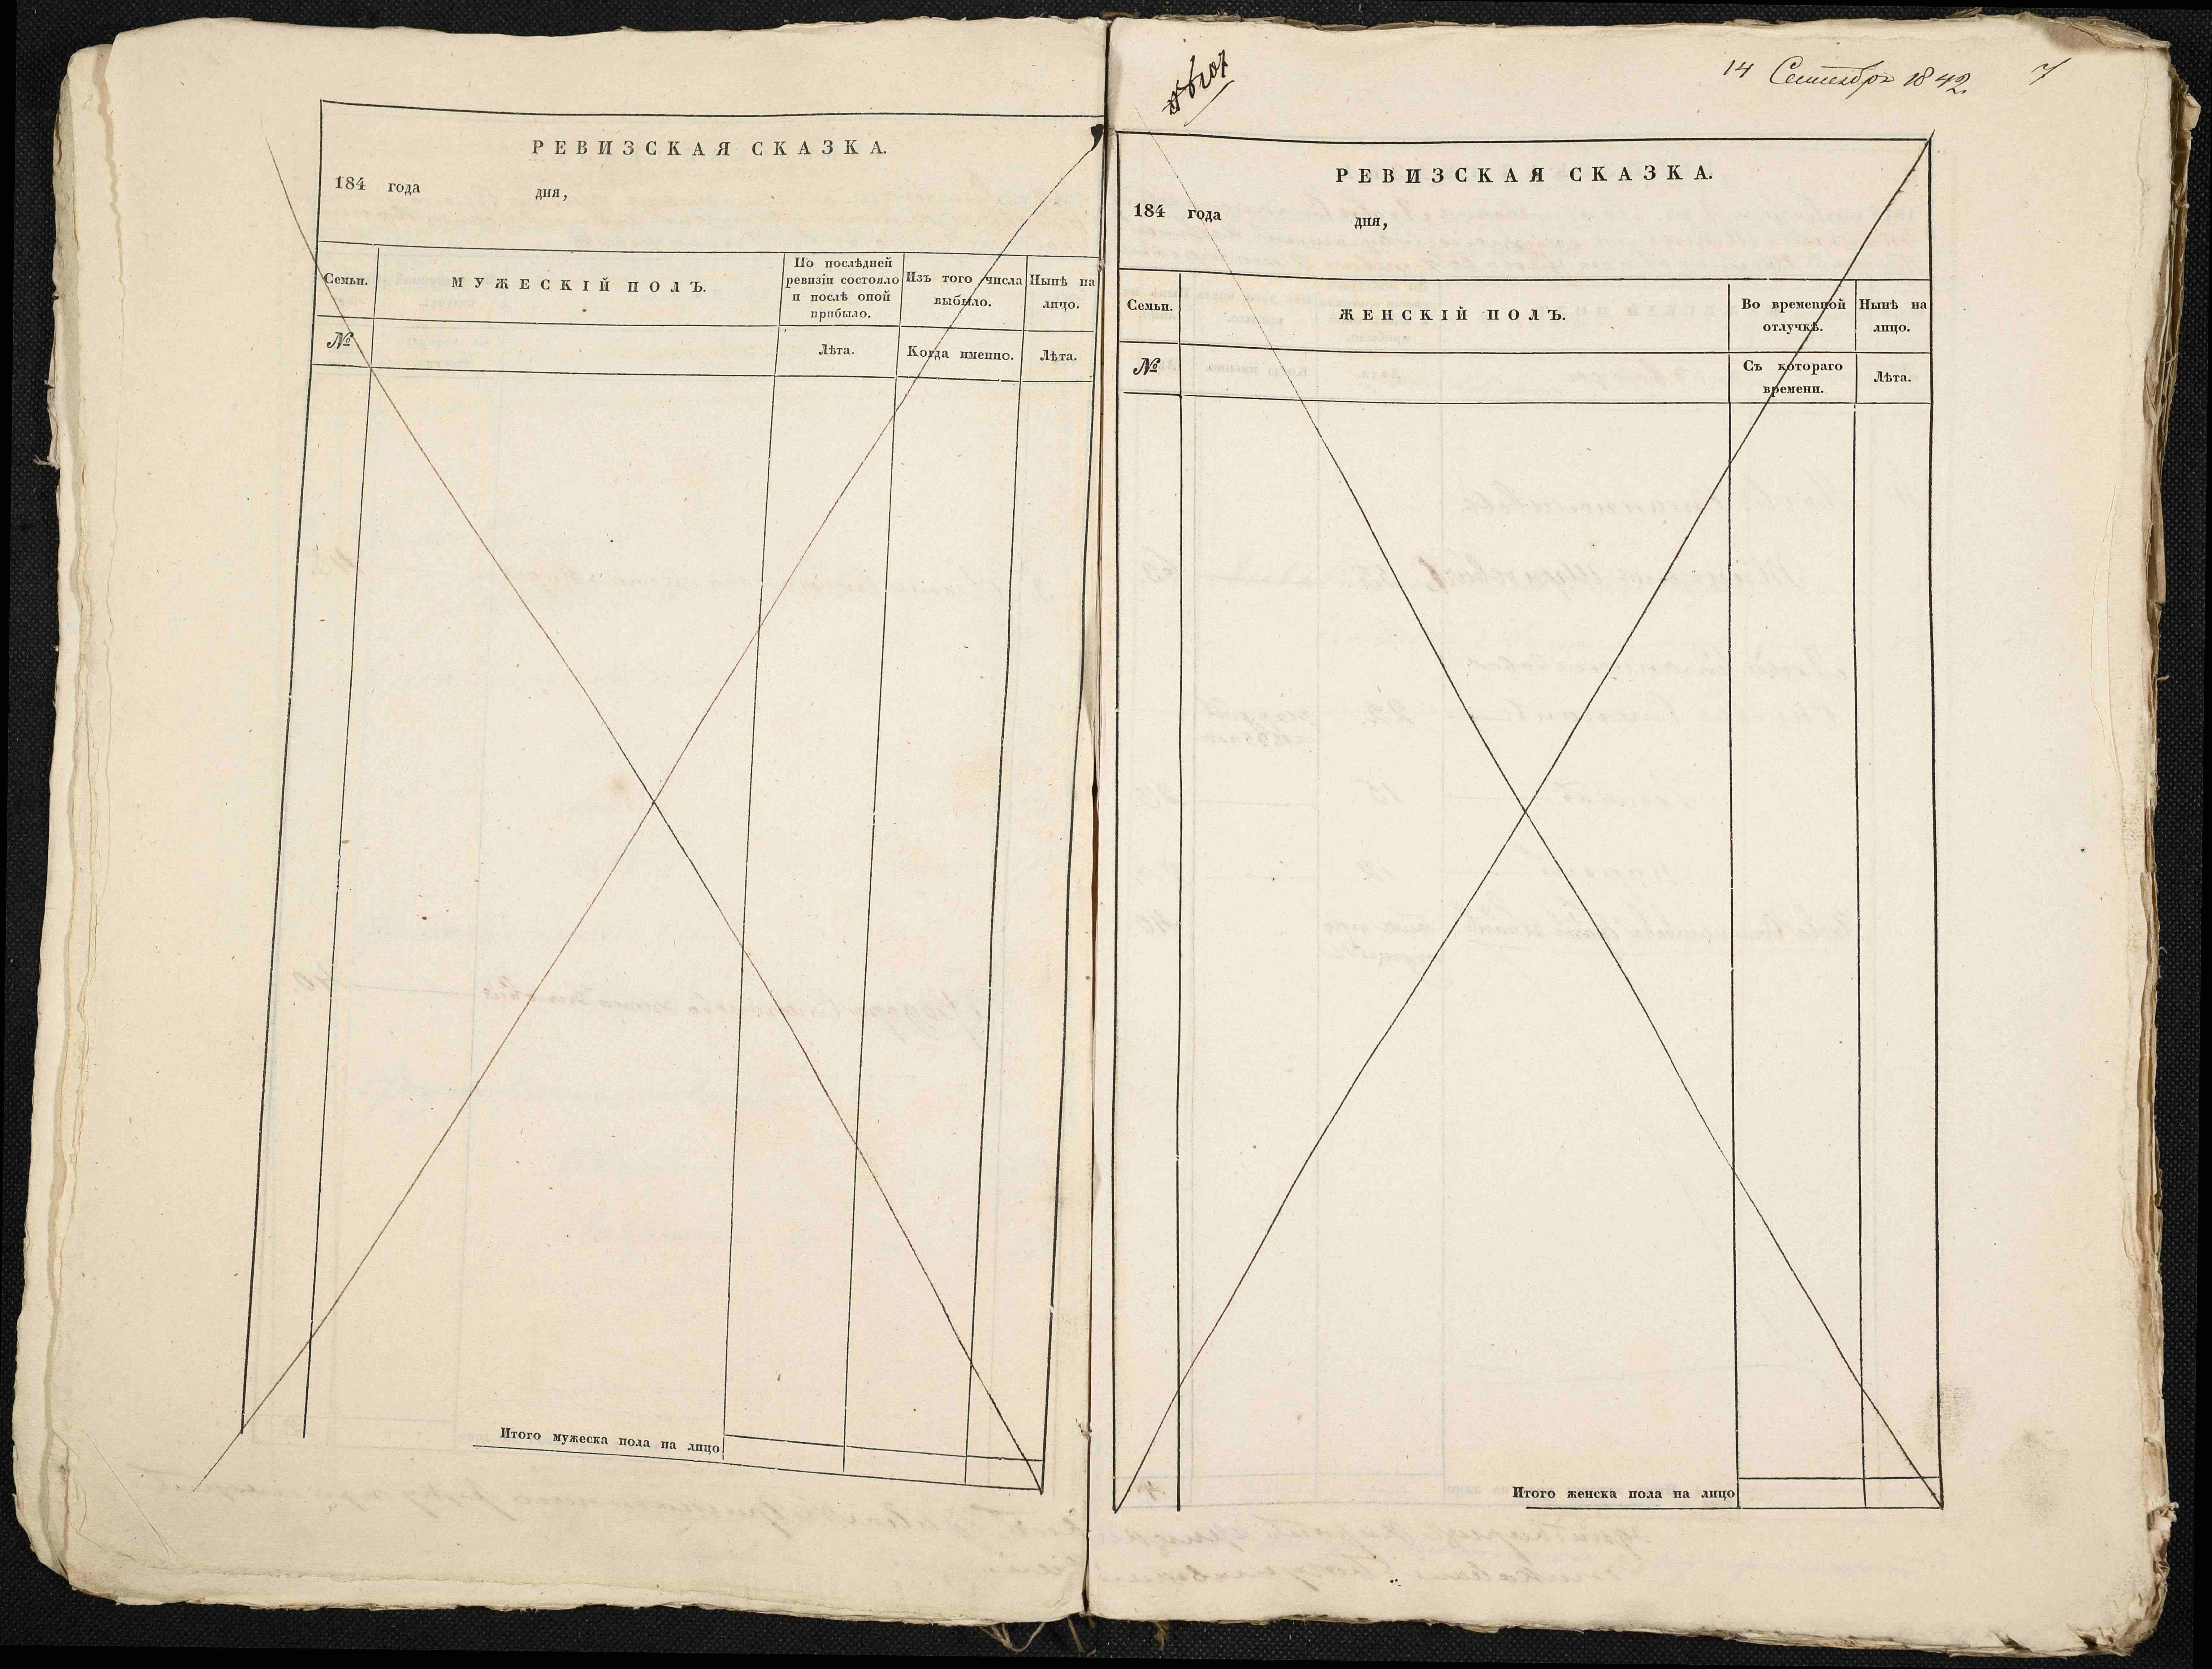 РЕВИЗСКАЯ СКАЗКА.
184 года дня,
Семьи.
МУЖЕСКІЙ ПОЛЪ.
По послѣдней ревизіи состояло и послѣ оной прибыло.
Изъ того числа выбыло.
Нынѣ на лицо.
№
Лѣта.
Когда именно.
Лѣта.
Итого мужеска пола на лицо
14 Сентября 1842
7
РЕВИЗСКАЯ СКАЗКА.
184 года дня,
Семьи.
ЖЕНСКІЙ ПОЛЪ.
Во временной отлучкѣ.
Нынѣ на лицо.
№
Съ котораго времени.
Лѣта.
Итого женска пола на лицо